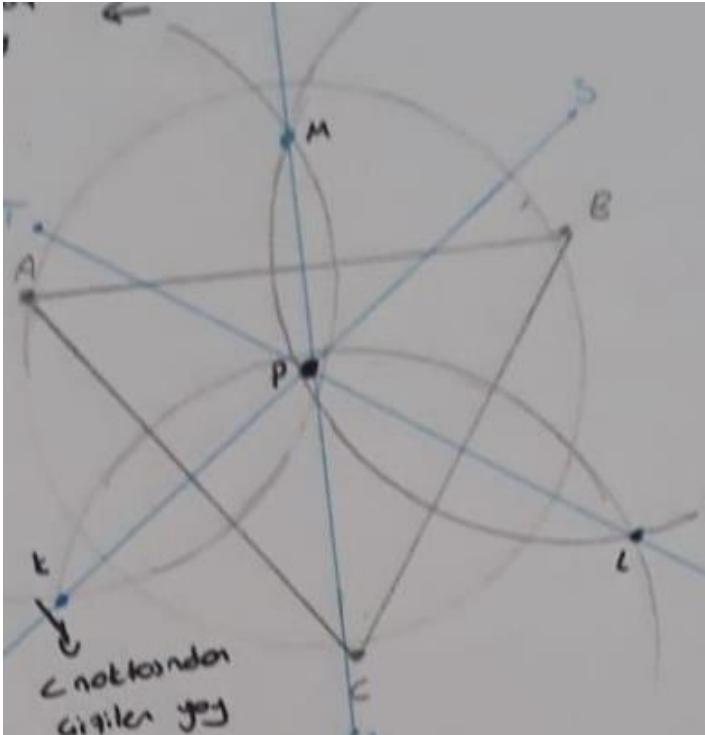 M
S
T
B
A
P
K
L
C noktasından
çizilen yay
C